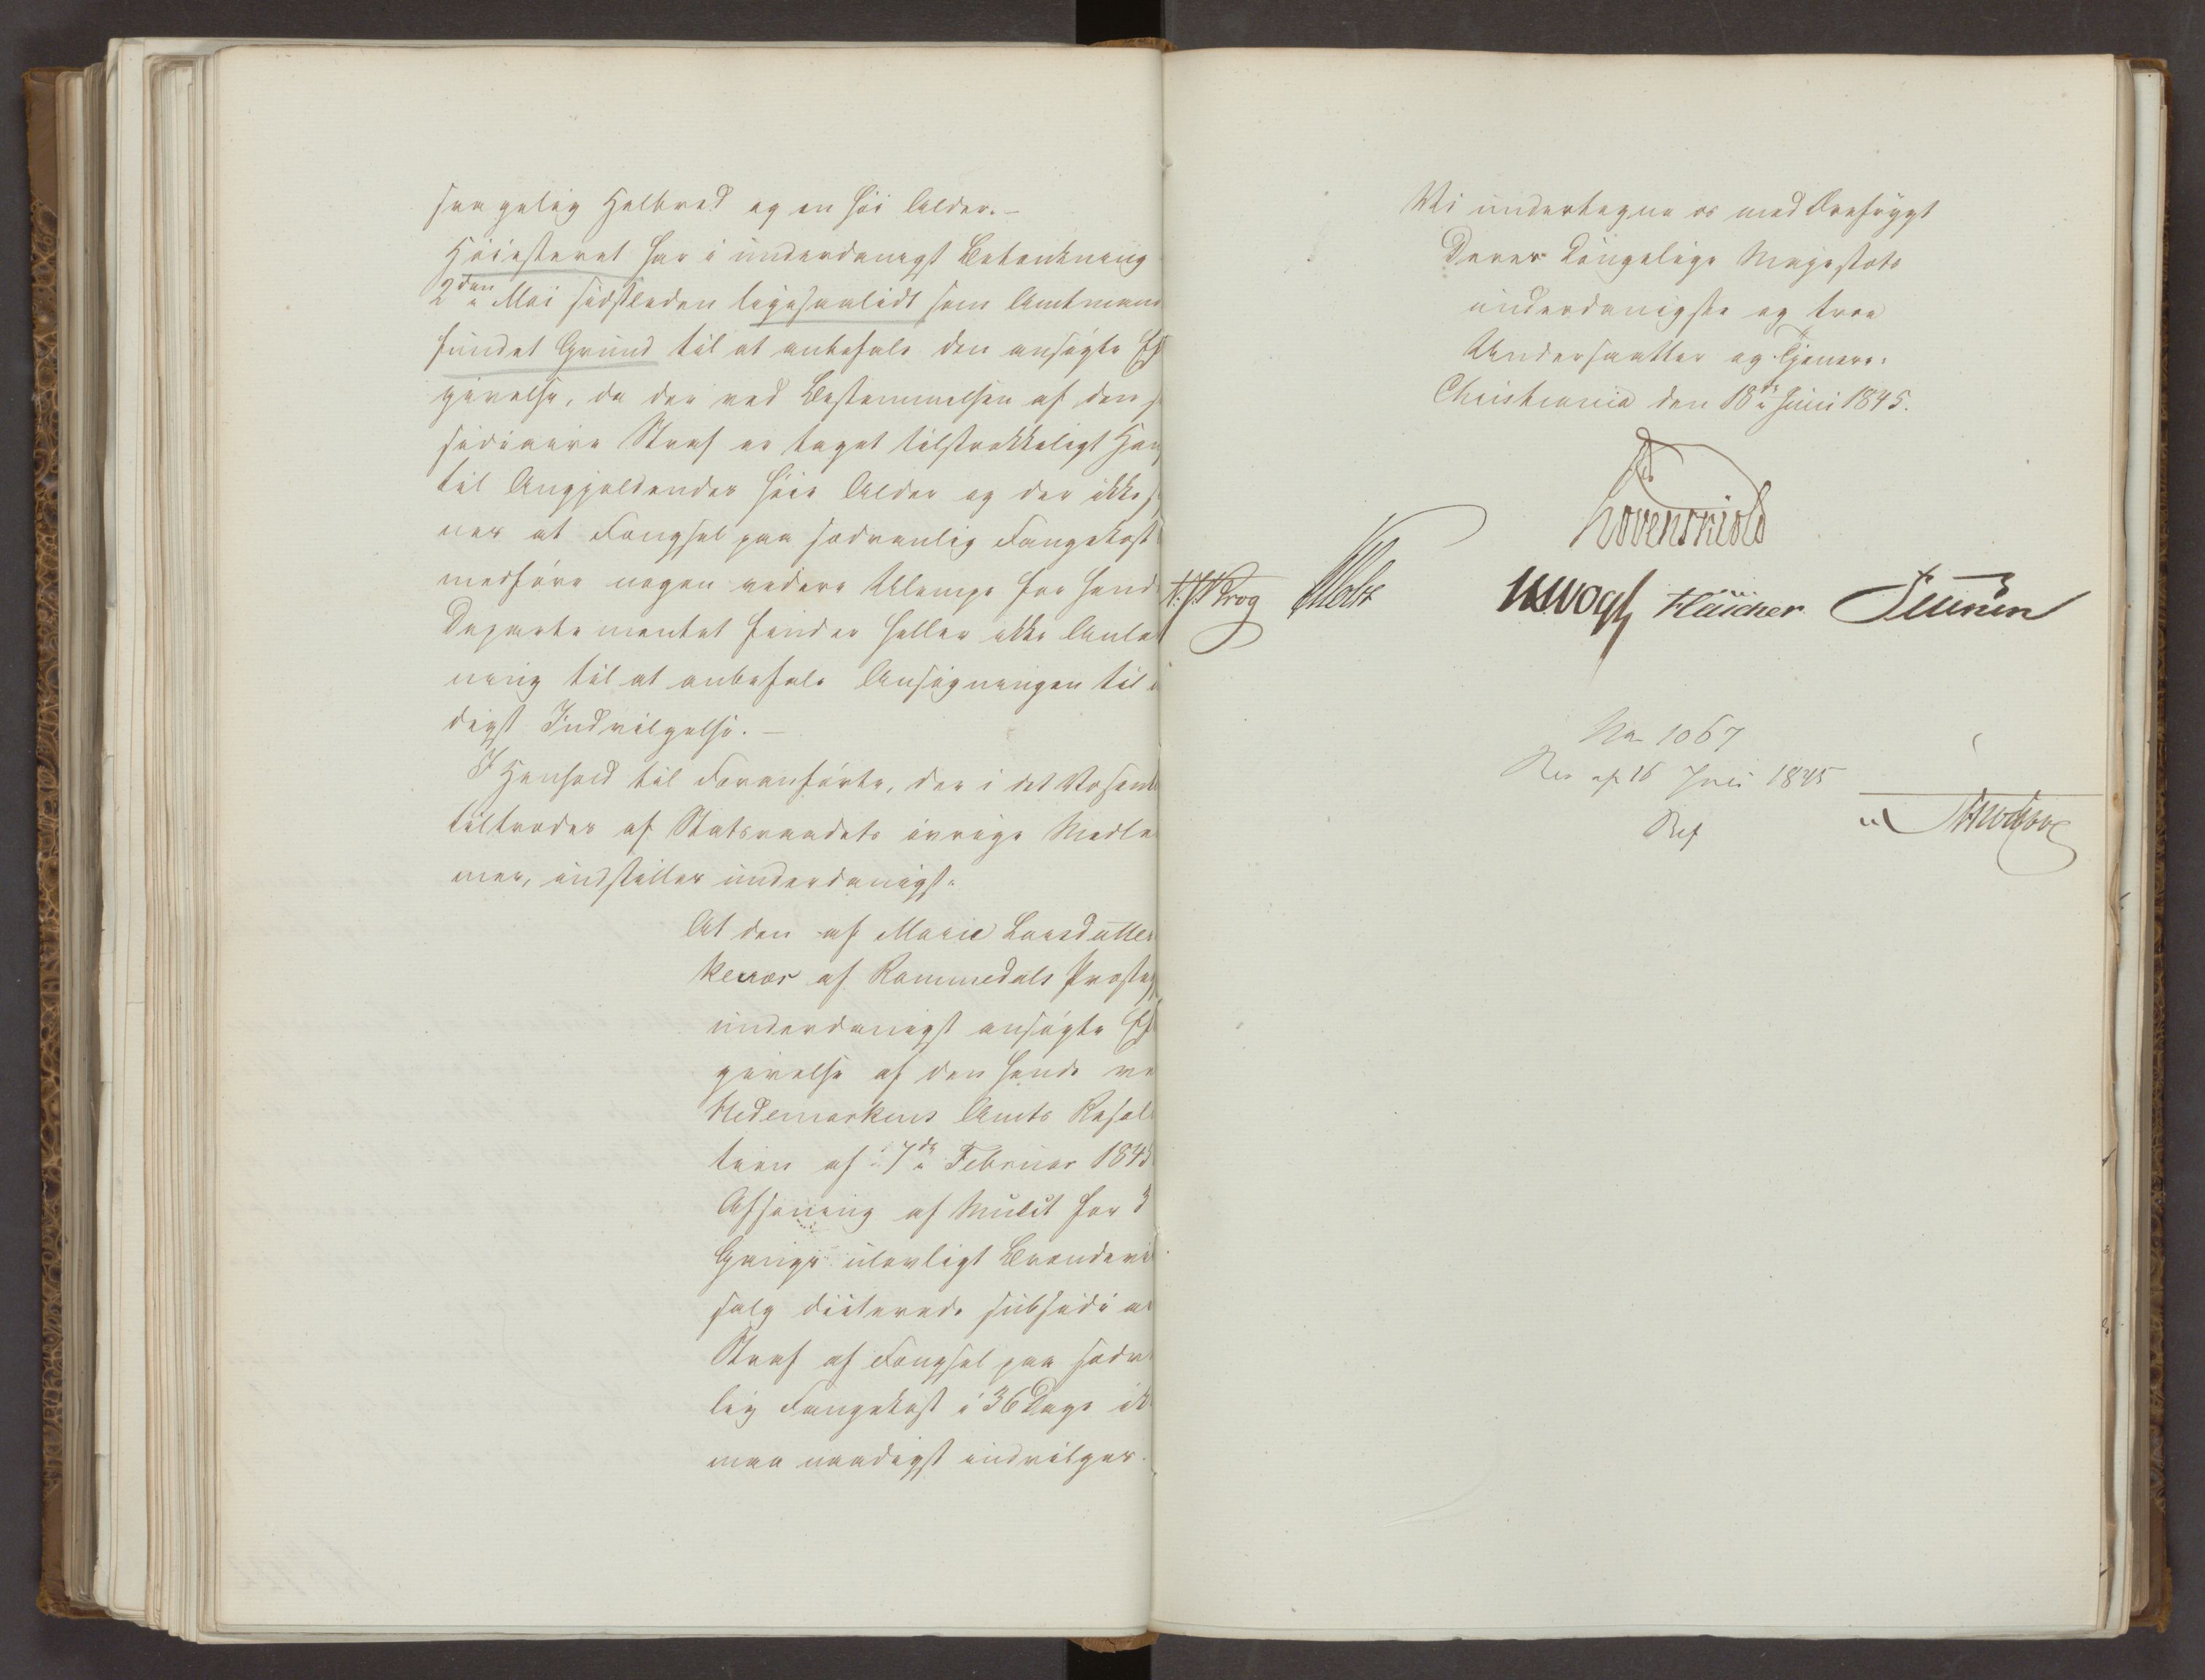 svagelig Helbred og en høi Alder.-
Høiesteret har i underdanigst Betænkning
2den Mai sidstleden ligesaalidt som Amtmanden
fundet Grund til at anbefale den ansøgte Ef
givelse, da der ved Bestemmelsen af den s
sidiaire Straf er taget tilstrækkeligt Hen
til Angjældendes høie Alder og der ikke s
nes at Fængsel paa sædvanlig Fangekost
medføre nogen videre Ulempe for hende
Departementet finder heller ikke Anled
ning til at anbefale Ansøgningen til n
digst Indvilgelse.-
I Henhold til Foranførte, der i det Væsentl
tiltrædes af Statsraadets øvrige Medle
mer, indstilles underdanigst:
At den af Marie Larsdatter
Kerræs af Rommedals Præsteg
underdanigst ansøgte Ef
givelse af den hende ve
Hedemarkens Amts Resol
tion af 7de Februar 1845
Afsoning af Mulct for 3
Gange ulovligt Brændevi
salg dicterede subsidiai
Straf af Fængsel paa sædv
lig Fangekost i 36 Dage ik
maa naadigst indvilges.
Vi undertegne os med Ærefrygt
Deres Kongelige Majestæts
underdanigste og troe
Undersaatter og Tjenere.
Christiania den 18de Juni 1845.
Løvenskiold
Krog Holst Vogt
No 1067
Res af 16 Juli 1845
Ref